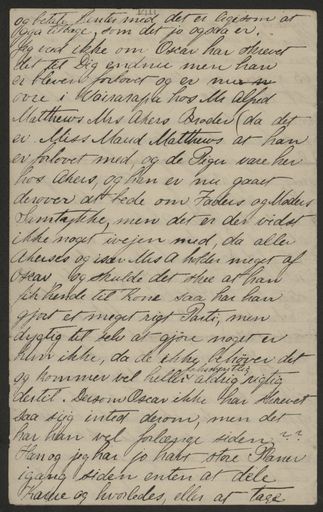 og betite hinter med det er ligesom at
bygge Kirke, som det jo ogsaa er.
Jeg ved ikke om Oscar har skrevet
det til Dig endnu men han
er bleven forlovet og er nu
ovre i Wairarapa hos Mr Alfred
Matthews Mrs Akers Broder (da det
er Miss Maud Matthews at han
er forlovet med, og de Piger vare her
hos Akers, og han er nu gaaet
derover at bede om Faders og Moders
Samtykke, men det er der vidst
ikke noget ivejen med, da alle
Akerses og især Mrs A holder meget af
Oscar. Og skulde det skee at han
fik hende til Kone saa har han
gjort et meget rigt Parti, men
dygtig til selv at gjøre noget er
hun ikke, da de ikke behøver det
og kommer vel heller aldrig rigtig
dertil. Dersom Oscar ikke har skrevet
saa sig intet derom, men det
har han vel forlængst siden ? ?
Han og jeg har jo havt store Planer
igang siden enten at dele
Kassie og hvorledes, eller at tage